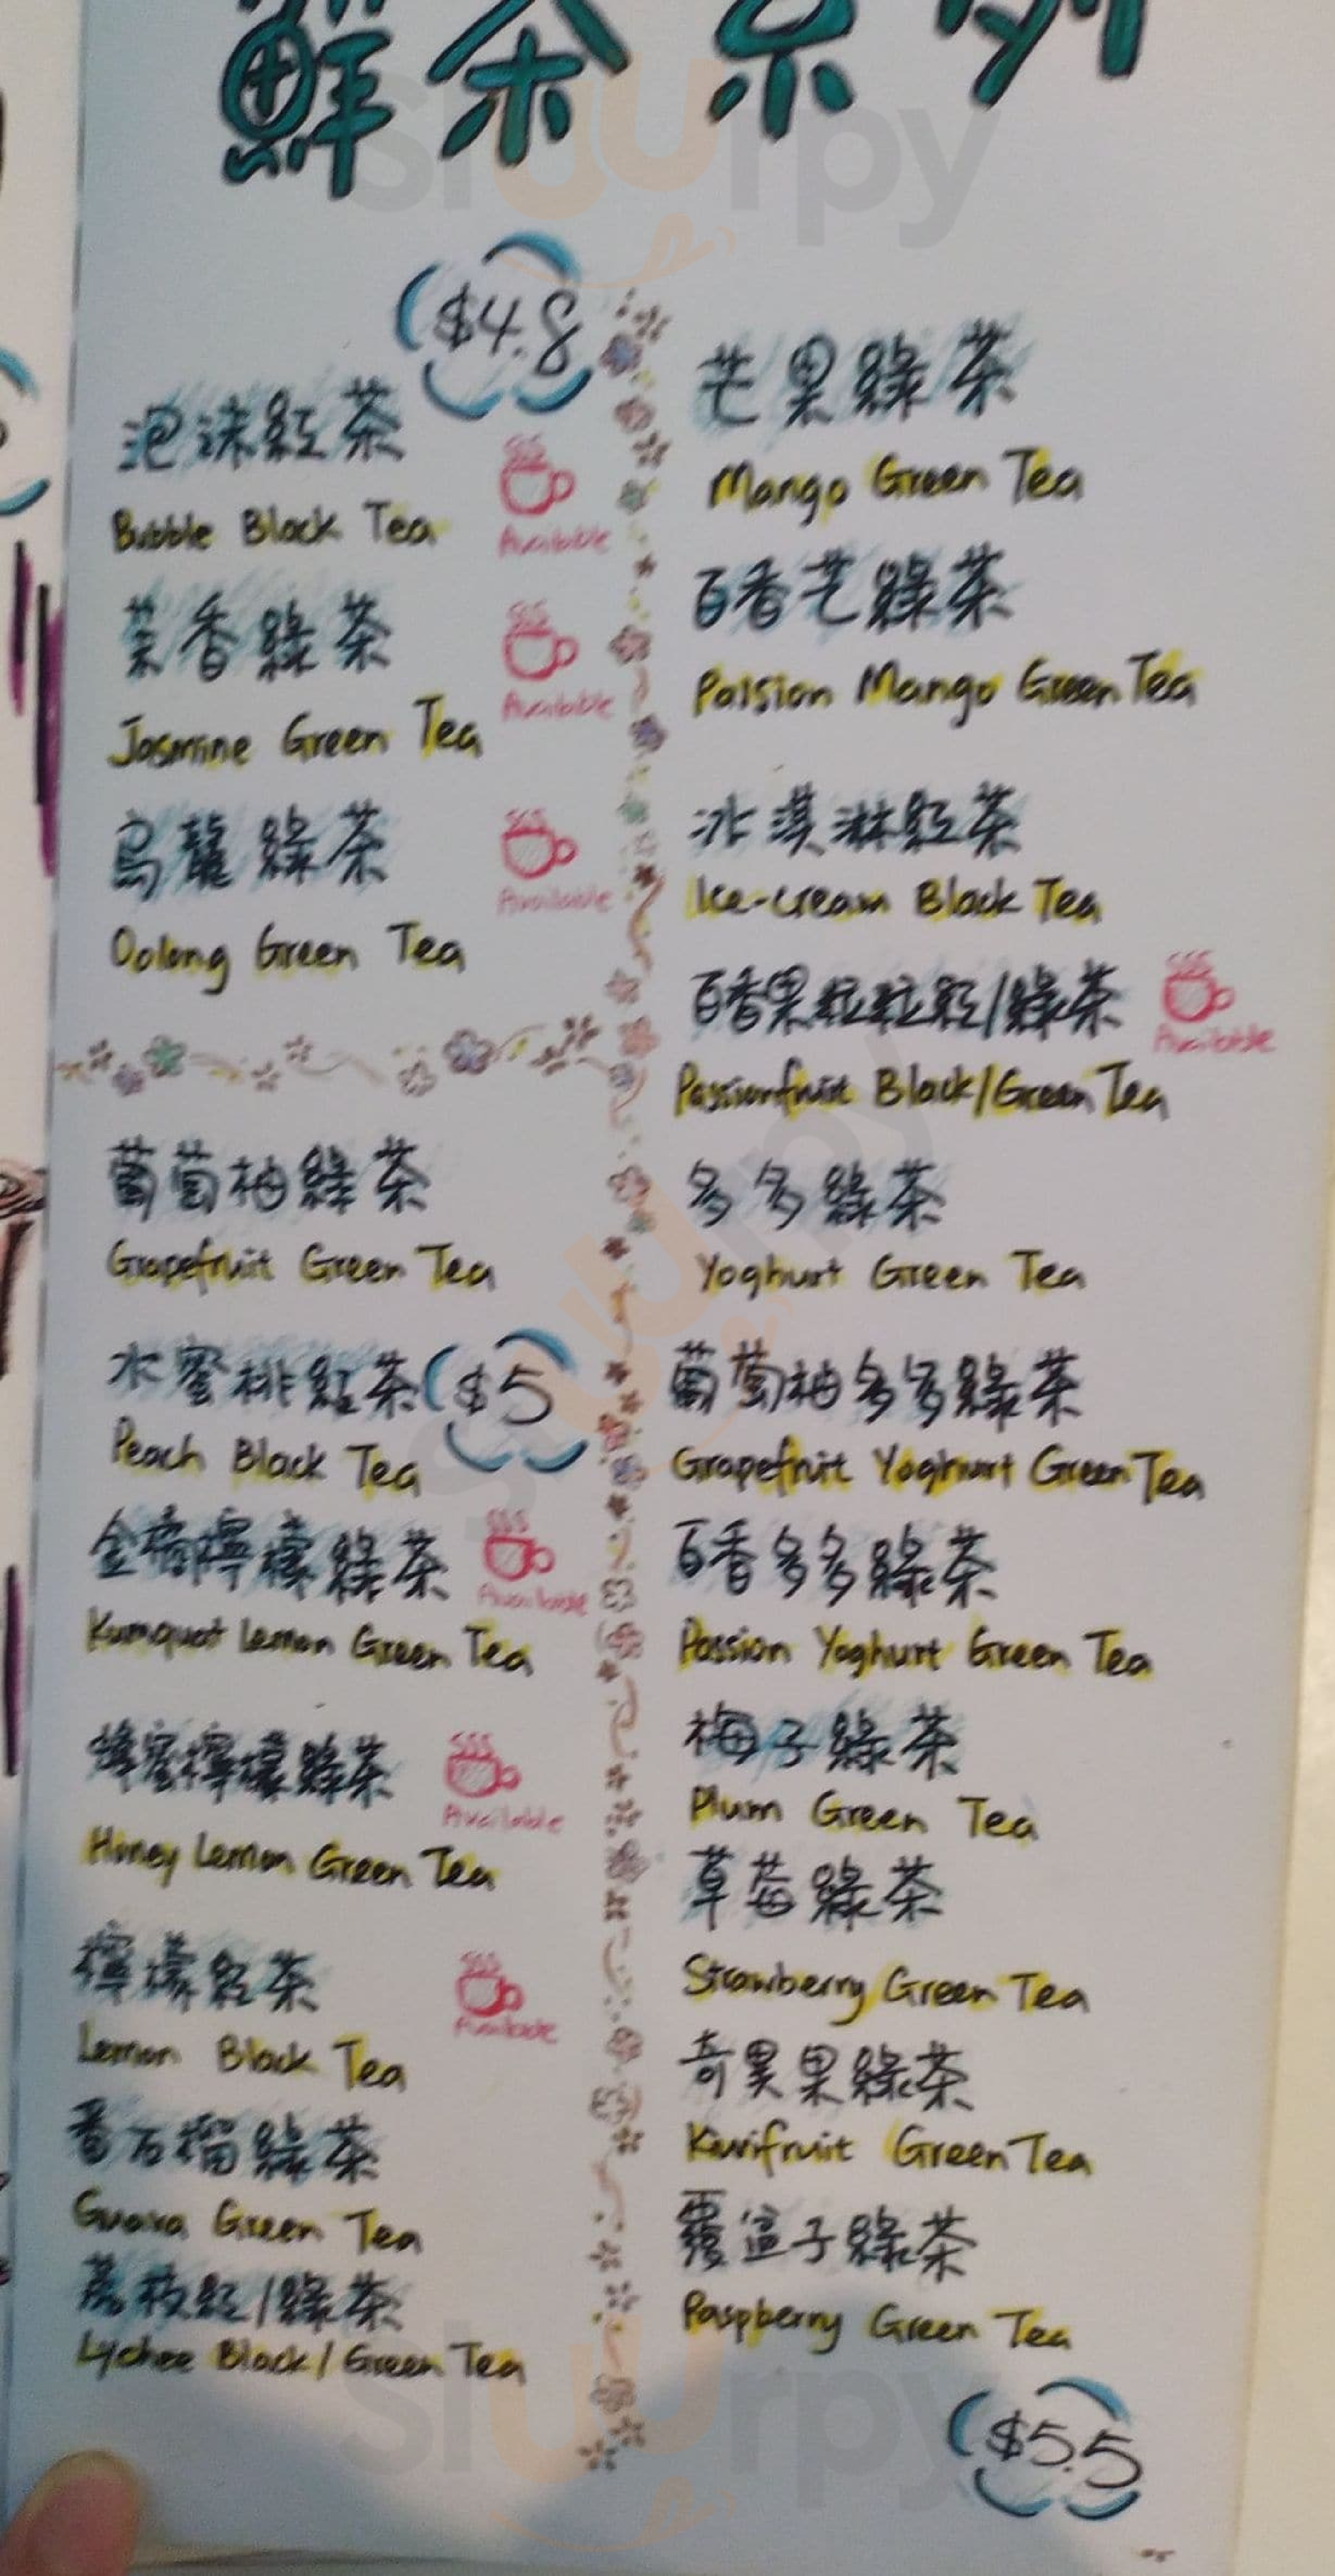 鮮茶系列
$4.8
泡沫紅茶
Bubble Black Tea
Available
茉香綠茶
Jasmine Green Tea
Available
烏龍綠茶
Oolong Green Tea
Available
葡萄柚綠茶
Grapefruit Green Tea
水蜜桃紅茶
$5
Peach Black Tea
金橘檸檬綠茶
Kumquat Lemon Green Tea
Available
蜂蜜檸檬綠茶
Honey Lemon Green Tea
Available
檸檬紅茶
Lemon Black Tea
Available
番石榴綠茶
Guava Green Tea
荔枝紅/綠茶
Lychee Black/Green Tea
芒果綠茶
Mango Green Tea
百香芒綠茶
Passion Mango Green Tea
冰淇淋紅茶
Ice-cream Black Tea
百香果粒粒紅/綠茶
Available
Passionfruit Black/Green Tea
多多綠茶
Yoghurt Green Tea
葡萄柚多多綠茶
Grapefruit Yoghurt Green Tea
百香多多綠茶
Passion Yoghurt Green Tea
梅子綠茶
Plum Green Tea
草莓綠茶
Strawberry Green Tea
奇異果綠茶
Kiwifruit Green Tea
覆盆子綠茶
Raspberry Green Tea
$5.5
sluurpy
sluurpy
sluurpy